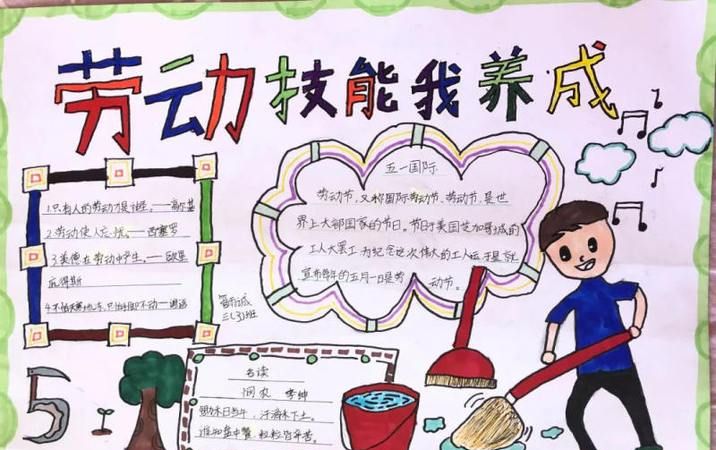 劳动技能我养成
1.只有人的劳动才是神圣。——高尔基
2.劳动使人忘忧。——西塞罗
3.美德在劳动中产生。——欧里
庇得斯
三(3)班
五一国际
劳动节,又称国际劳动节、劳动节,是世
界上大部国家的节日。节日于美国芝加哥城的
工人大罢工 为纪念这次伟大的工人运
宣布每年的五月1日是劳动节。
古诗
悯农 李绅
锄禾日当午,汗滴禾下土。
谁知盘中餐 粒粒皆辛苦。